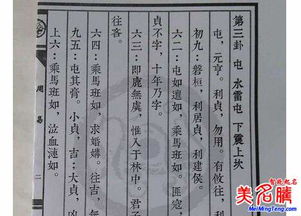 第三卦 屯 水雷屯 下震上坎
屯，元亨。利貞，勿用。有攸往，利
初九：磐桓，利居貞，利建侯。
六二：屯如邅如，乘馬班如。匪寇，
貞不字，十年乃字。
六三：即鹿無虞，惟入于林中。君子
往吝。
六四：乘馬班如，求婚媾。往吉，無
九五：屯其膏。小貞，吉；大貞，凶
上六：乘馬班如，泣血漣如。
周易
二
美名騰
智能起名
MeiMingTeng.com